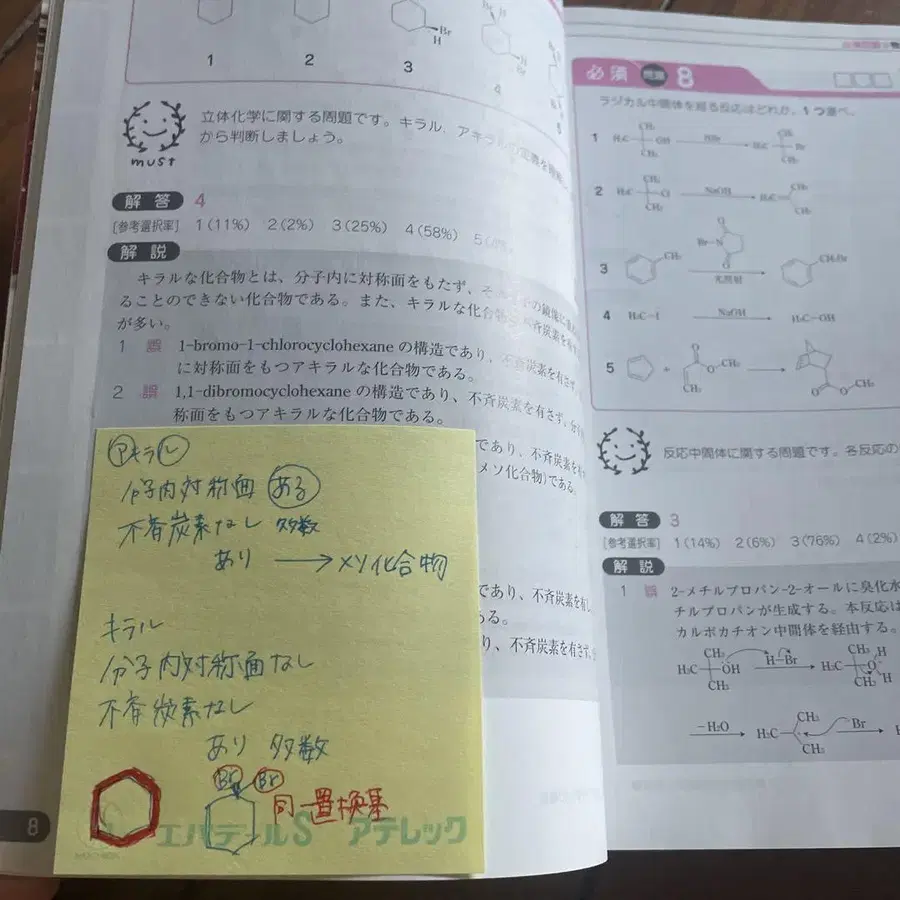 1
2
3
4
5
Br
H
must
立体化学に関する問題です。キラル、アキラルの定義を理解し
から判断しましょう。
解答 4
[参考選択率] 1(11%) 2(2%) 3(25%) 4(58%) 5
解説
キラルな化合物とは、分子内に対称面をもたず、
ることのできない化合物である。また、キラルな化合物
が多い。
1 誤 1-bromo-1-chlorocyclohexane の構造であり、不斉炭素を有さず、
に対称面をもつアキラルな化合物である。
2 誤 1,1-dibromocyclohexane の構造であり、不斉炭素を有さず、
称面をもつアキラルな化合物である。
であり、不斉炭素を
メソ化合物)である。
であり、不斉炭素を有し、
ある。
り、不斉炭素を有さず、
アキラル
分子内対称面 ある
不斉炭素なし 多数
あり → メソ化合物
キラル
分子内対称面なし
不斉炭素なし
あり 多数
Br Br
同一置換基
エパデールS アテレック
8
必須 問題 8
ラジカル中間体を経る反応はどれか。1つ選べ。
1 H₃C CH₃ OH CH₃ HBr H₃C CH₃ Br CH₃
2 H₃C CH₃ Cl CH₃ NaOH H₃C CH₃ CH₃
3 CH₃ Br N O O 光照射 CH₂Br
4 H₃C-I NaOH H₃C-OH
5 + O O CH₃ CH₂ O O CH₃
反応中間体に関する問題です。各反応の
解答 3
[参考選択率] 1(14%) 2(6%) 3(76%) 4(2%)
解説
1 誤 2-メチルプロパン-2-オールに臭化水
チルプロパンが生成する。本反応は
カルボカチオン中間体を経由する。
H₃C CH₃ OH CH₃ H-Br H₃C CH₃ O H H CH₃
-H₂O H₃C CH₃ CH₃ Br